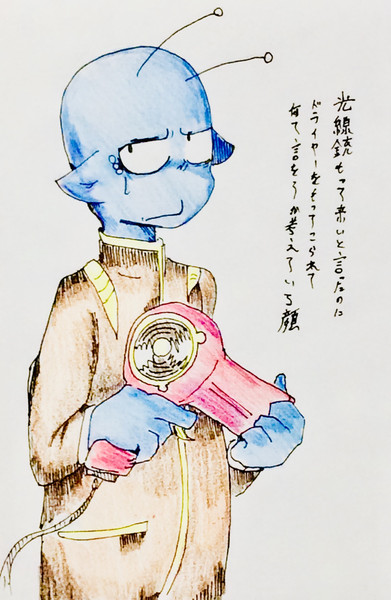 光線銃もって来いと言ったのに
ドライヤーをもってこられて
なんて言おうか考えている顔